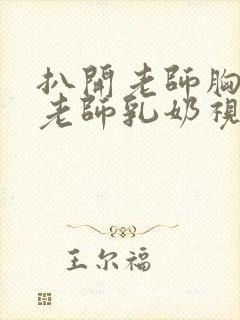 扒開老師胸
老師乳奶視
王尔福